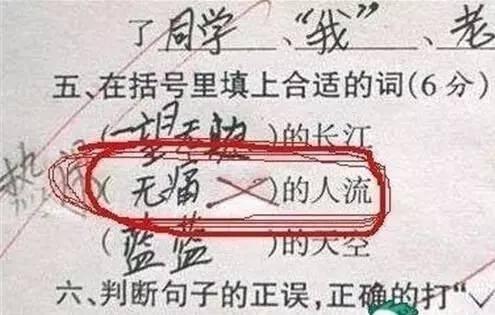 了同学、“我”、老
五、在括号里填上合适的词(6分)
(一望无际)的长江
热闹(无痛)的人流
(蓝蓝)的天空
六、判断句子的正误,正确的打“✓